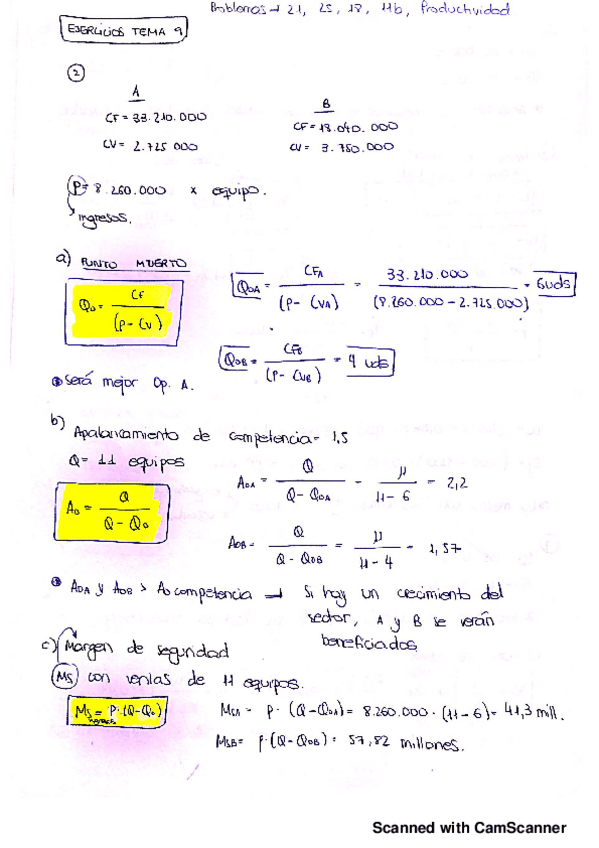 Problemas → 21, 25, 18, 11b, Productividad
EJERCICIOS TEMA 9
2
A
B
CF = 33.210.000
CF = 18.040.000
CV = 2.725 000
CV = 3.750.000
P = 8.260.000 x equipo.
ingresos.
a) PUNTO MUERTO
Q0 = CF / (P - CV)
Q0A = CFA / (P - CVA) = 33.210.000 / (8.260.000 - 2.725.000) = 6 uds
Q0B = CFB / (P - CVB) = 4 uds
será mejor Op. A.
b) Apalancamiento de competencia = 1,5
Q = 11 equipos
A0 = Q / Q - Q0
A0A = Q / Q - Q0A = 11 / 11 - 6 = 2,2
A0B = Q / Q - Q0B = 11 / 11 - 4 = 1,57
A0A y A0B > A0 competencia → Si hay un crecimiento del
sector, A y B se verán
beneficiados
c) Margen de seguridad
(MS) con ventas de 11 equipos.
MS = P·(Q-Q0)
ingresos
MSA = P·(Q-Q0A) = 8.260.000·(11-6) = 41,3 mill.
MSB = P·(Q-Q0B) = 57,82 millones.
Scanned with CamScanner